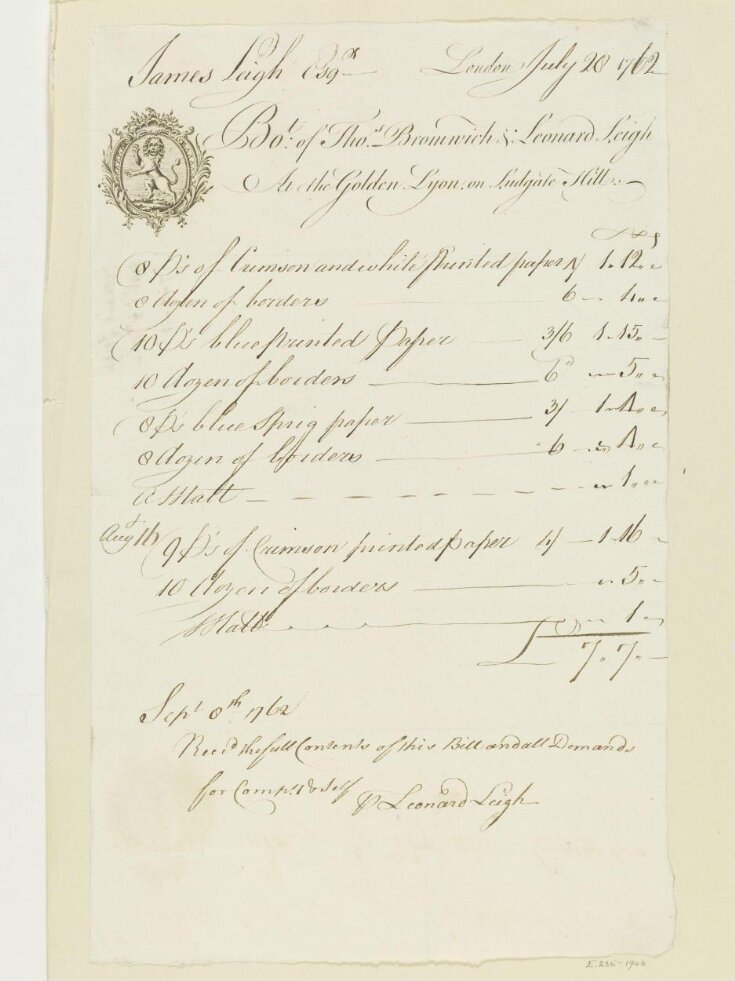 James Leigh Esqr London July 28 1762
Bot. of Thos. Bromwich & Leonard Leigh
At the Golden Lyon, on Ludgate Hill.
8 Ps of Crimson and white Printed paper 4/ 1 . 12 "
8 dozen of borders 6 4 "
10 Ps blue Printed Paper 3/6 1 . 15 "
10 dozen of borders 6d 5 "
8 Ps blue Sprig paper 3/ 1 . 4 "
8 dozen of borders 6 4 "
A Matt 1 "
Augt 16 9 Ps of Crimson printed paper 4/ 1 . 16
10 dozen of borders 5 "
Matt 1 "
£ 7 " 7 "
Sept 8th 1762
Recd the full Contents of this Bill and all Demands
for Compy & Self P Leonard Leigh
E.235-1943